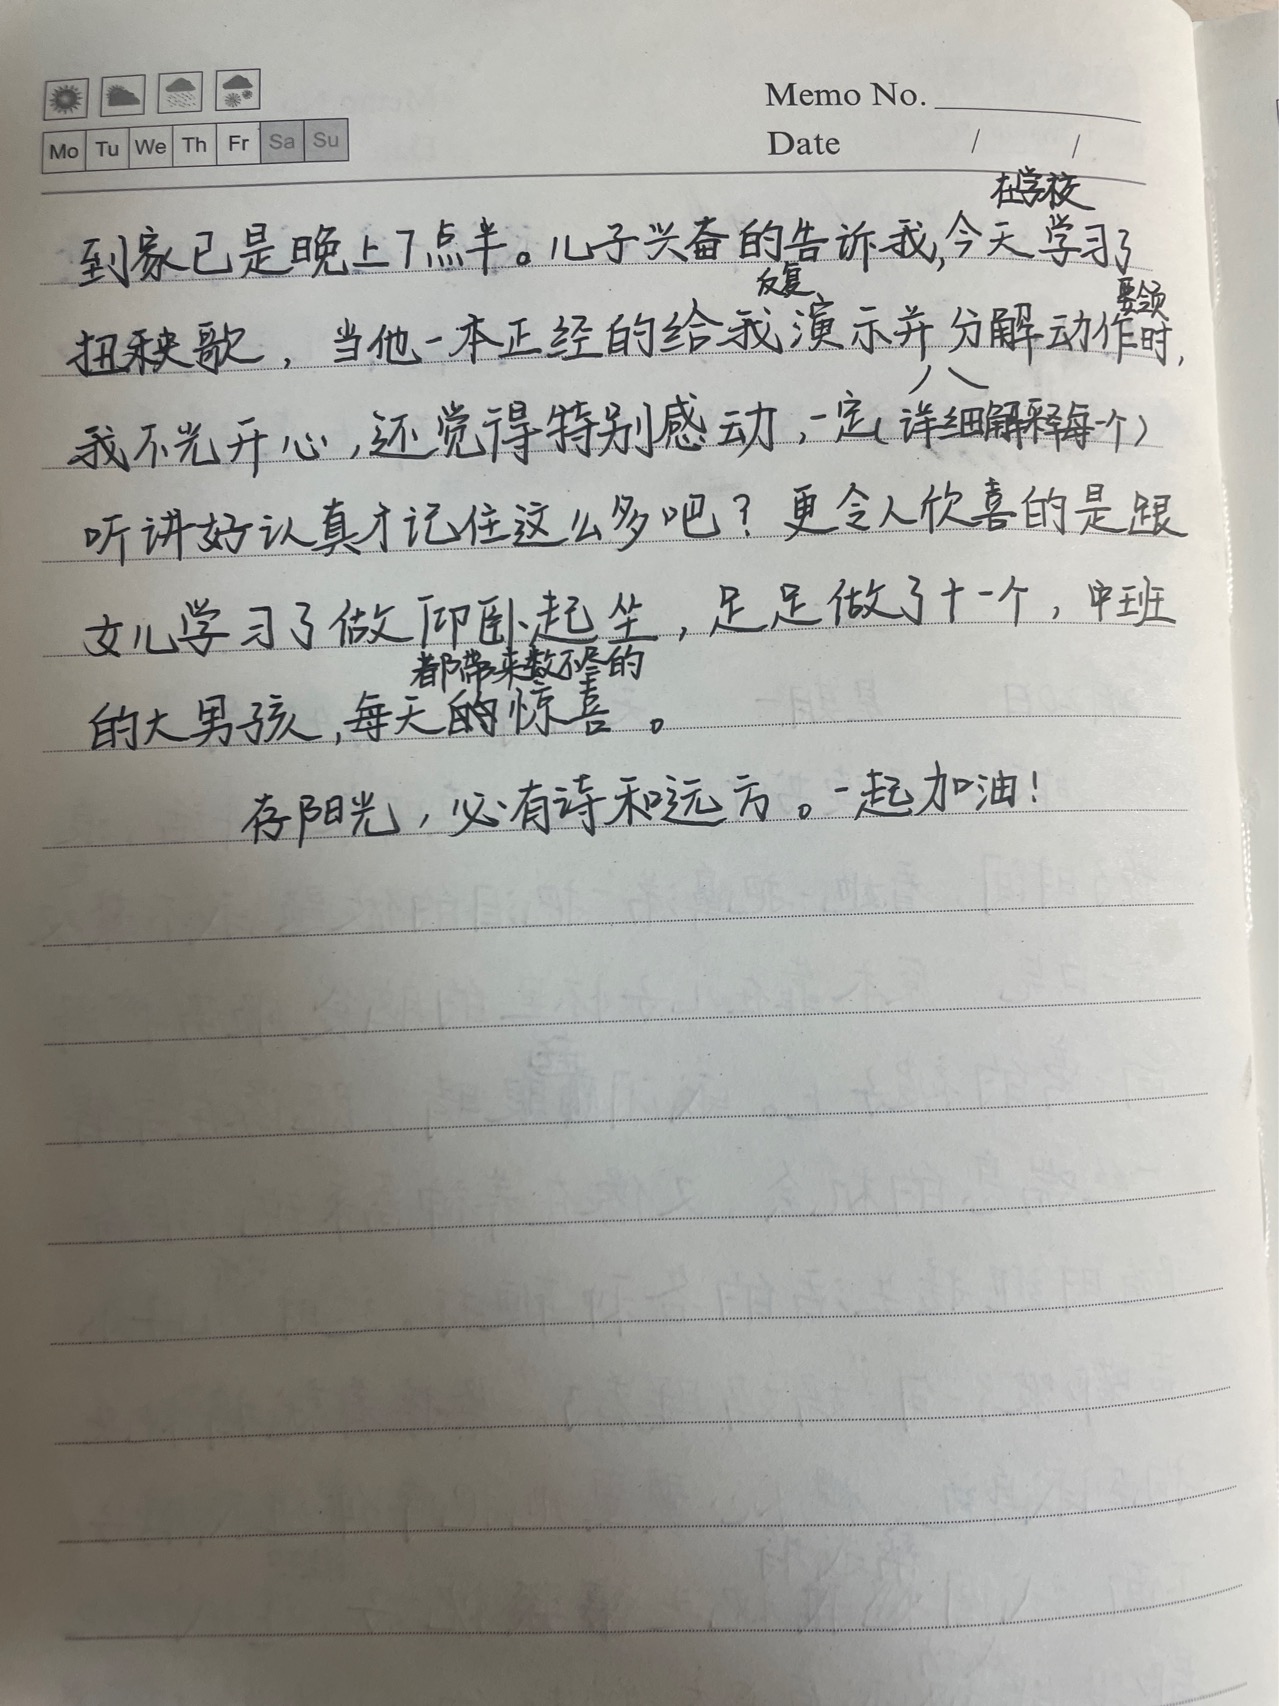 Memo No.
Mo Tu We Th Fr Sa Su
Date / /
在学校
到家已是晚上7点半。儿子兴奋的告诉我,今天学习了
反复
要领
扭秧歌，当他一本正经的给我演示并分解动作时,
我不光开心,还觉得特别感动,一定(详细解释每一个)
听讲好认真才记住这么多吧？更令人欣喜的是跟
女儿学习了做仰卧起坐，足足做了十一个，中班
都带来数不尽的
的大男孩,每天的惊喜。
存阳光，必有诗和远方。一起加油!